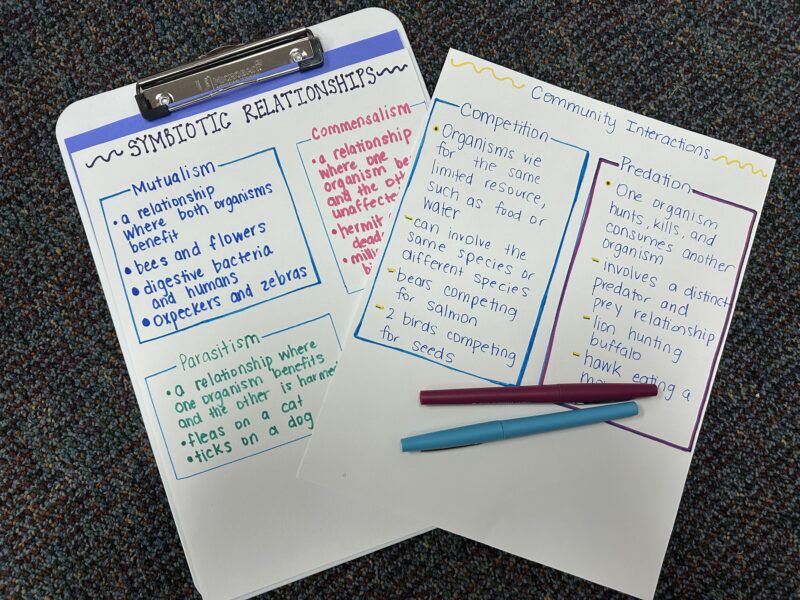 SYMBIOTIC RELATIONSHIPS
Mutualism
• a relationship
where both organisms
benefit
• bees and flowers
• digestive bacteria
and humans
• oxpeckers and zebras
Commensalism
• a relationship
where one
organism be
and the ot
unaffecte
• hermit
dead
• mill
Parasitism
• a relationship where
one organism benefits
and the other is harme
• fleas on a cat
• ticks on a dog
Community Interactions
Competition
• Organisms vie
for the same
limited resource,
such as food or
water
- can involve the
same species or
different species
- bears competing
for salmon
- 2 birds competing
for seeds
Predation
• One organism
hunts, kills, and
consumes another
organism
- involves a distinct
predator and
prey relationship
- lion hunting
buffalo
- hawk eating a